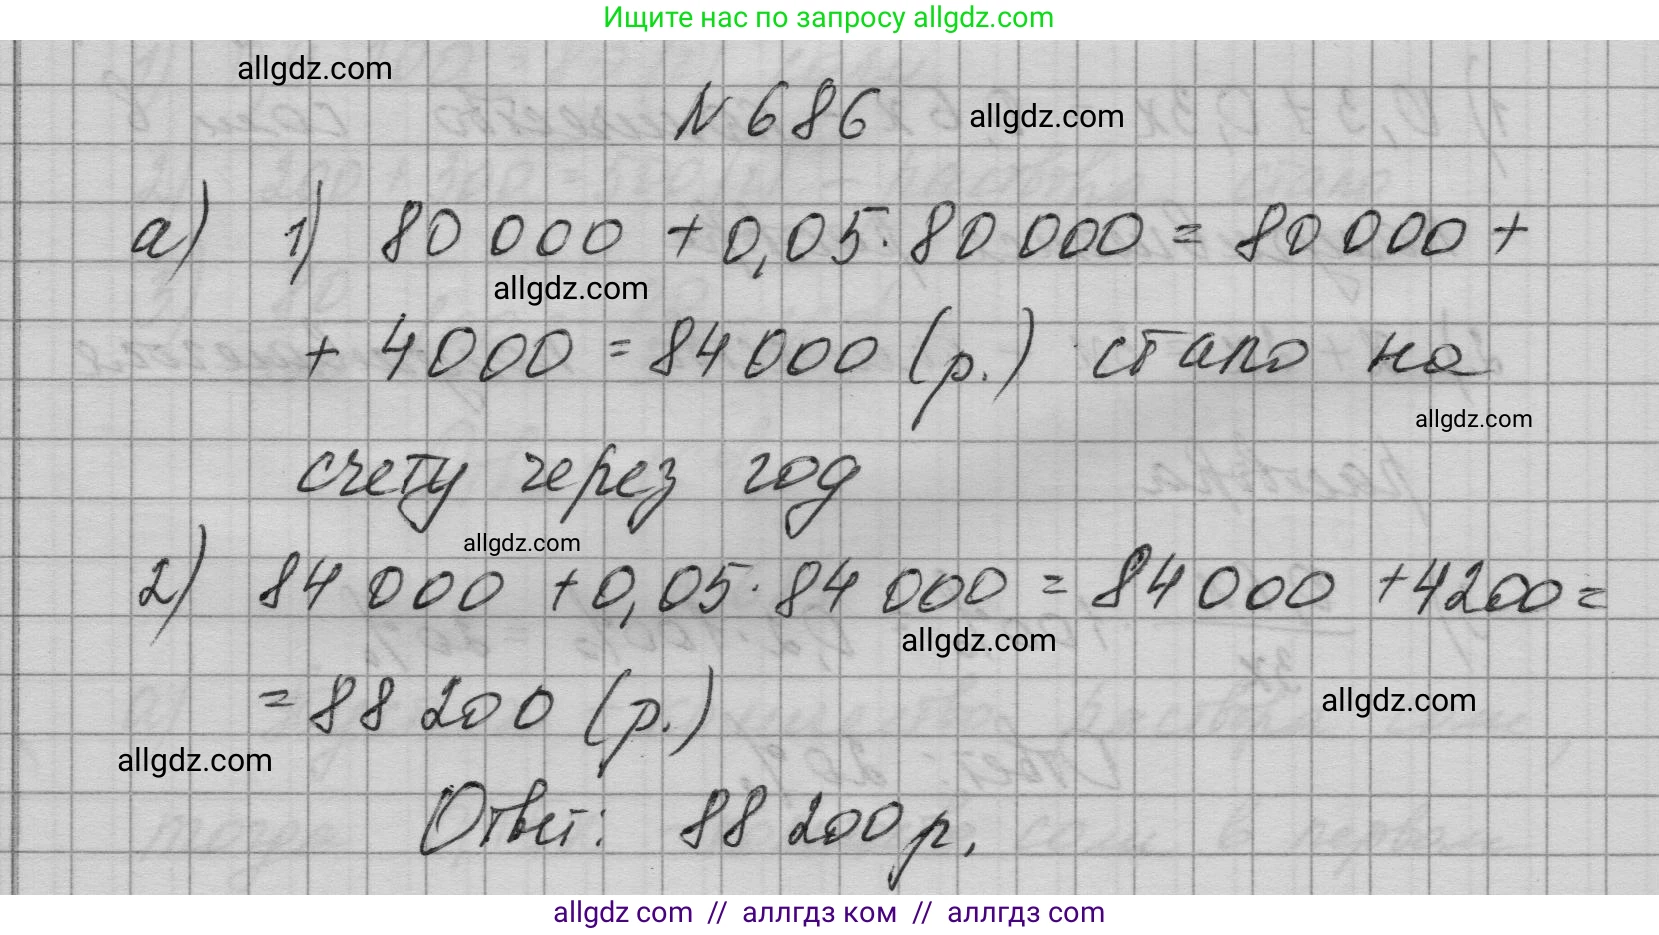 Ищите нас по запросу allgdz.com
allgdz.com
N 686
allgdz.com
а) 1) 80 000 + 0,05 · 80 000 = 80 000 +
allgdz.com
+ 4000 = 84 000 (р.) стало на
allgdz.com
счету через год
allgdz.com
2) 84 000 + 0,05 · 84 000 = 84 000 + 4200 =
allgdz.com
= 88 200 (р.)
allgdz.com
allgdz.com
Ответ: 88 200 р.
allgdz com // аллгдз ком // аллгдз com